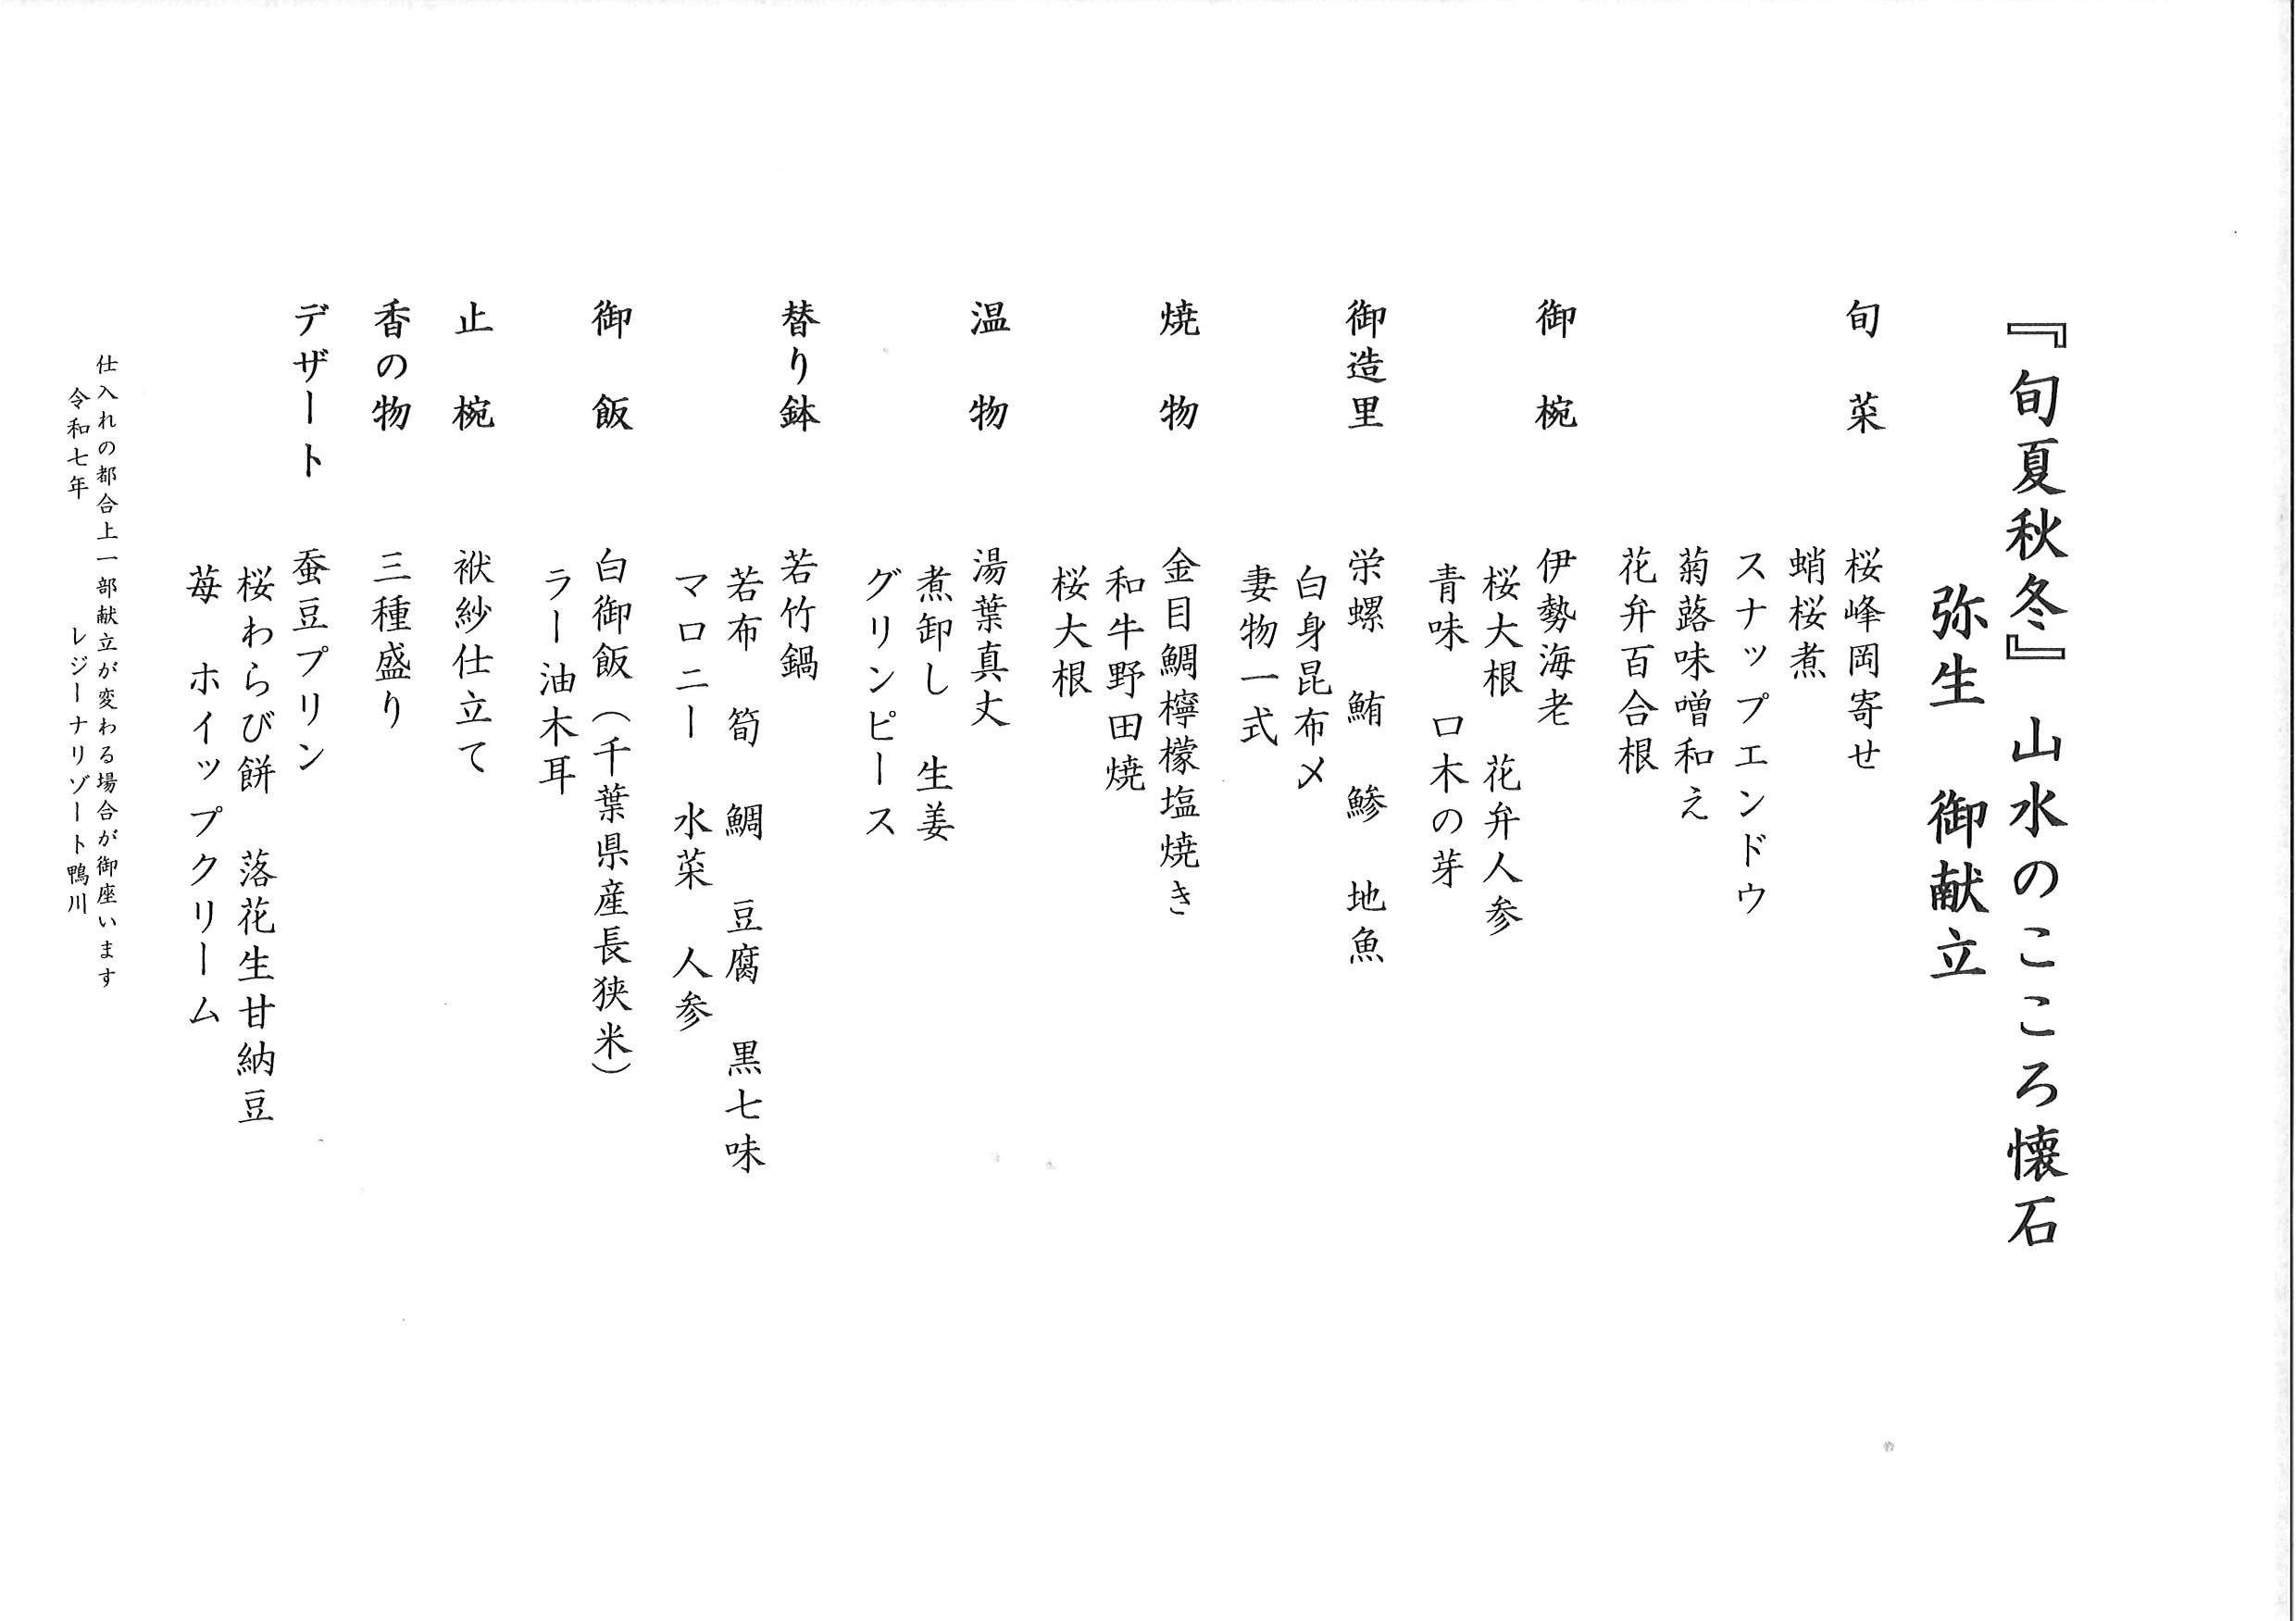 『旬夏秋冬』 山水のこころ懐石
弥生 御献立
旬菜 桜峰岡寄せ
蛸桜煮
スナップエンドウ
菊蕗味噌和え
花弁百合根
御椀 伊勢海老
桜大根 花弁人参
青味 口木の芽
御造里 栄螺 鮪 鯵 地魚
白身昆布〆
妻物一式
焼物 金目鯛檸檬塩焼き
和牛野田焼
桜大根
温物 湯葉真丈
煮卸し 生姜
グリンピース
替り鉢 若竹鍋
若布 筍 鯛 豆腐 黒七味
マロニー 水菜 人参
御飯 白御飯（千葉県産長狭米）
ラー油木耳
止椀 袱紗仕立て
香の物 三種盛り
デザート 蚕豆プリン
桜わらび餅 落花生甘納豆
苺 ホイップクリーム
仕入れの都合上一部献立が変わる場合が御座います
令和七年 レジーナリゾート鴨川